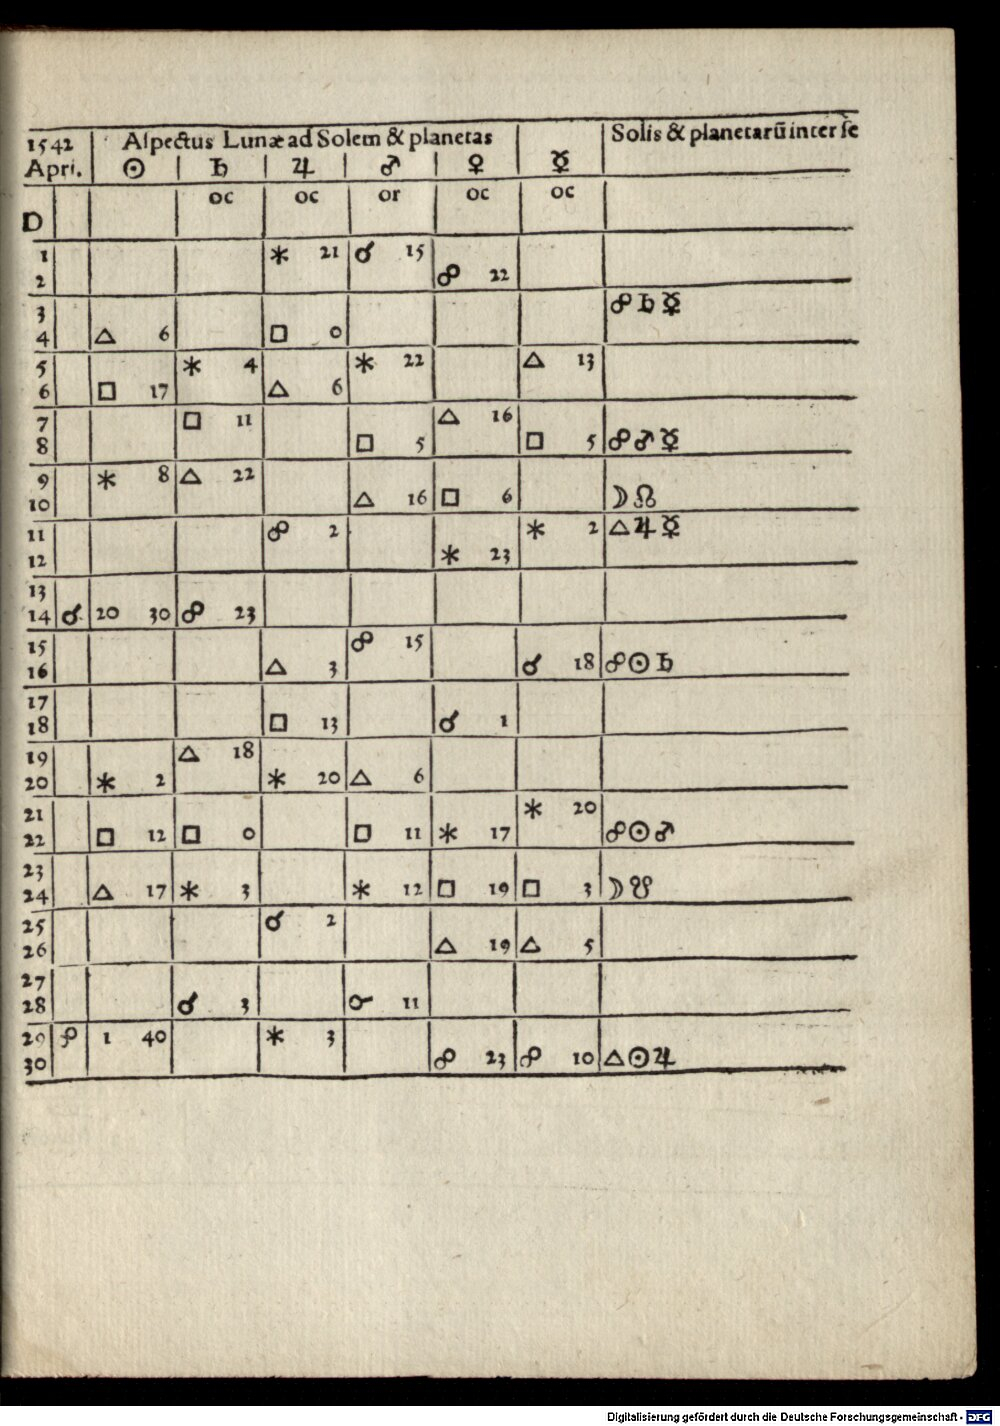 1542 Aſpectus Lunæ ad Solem & planetas Solis & planetarū inter ſe
Apri. ☉ ♄ ♃ ♂ ♀ ☿
D oc oc or oc oc
1 ⚹ 21 ☌ 15
2 ☍ 22
3 ☍ ♄ ☿
4 △ 6 □ 0
5 ⚹ 4 ⚹ 22 △ 13
6 □ 17 △ 6
7 □ 11 △ 16
8 □ 5 □ 5 ☍ ♂ ☿
9 ⚹ 8 △ 22
10 △ 16 □ 6 ☽ ☊
11 ☍ 2 ⚹ 2 △ ♃ ☿
12 ⚹ 23
13
14 ☌ 20 30 ☍ 23
15 ☍ 15
16 △ 3 ☌ 18 ☍ ☉ ♄
17
18 □ 13 ☌ 1
19 △ 18
20 ⚹ 2 ⚹ 20 △ 6
21 ⚹ 20
22 □ 12 □ 0 □ 11 ⚹ 17 ☍ ☉ ♂
23
24 △ 17 ⚹ 3 ⚹ 12 □ 19 □ 3 ☽ ☋
25 ☌ 2
26 △ 19 △ 5
27
28 ☌ 3 ☌ 11
29 ☍ 1 40 ⚹ 3
30 ☍ 23 ☍ 10 △ ☉ ♃
Digitalisierung gefördert durch die Deutsche Forschungsgemeinschaft - DFG